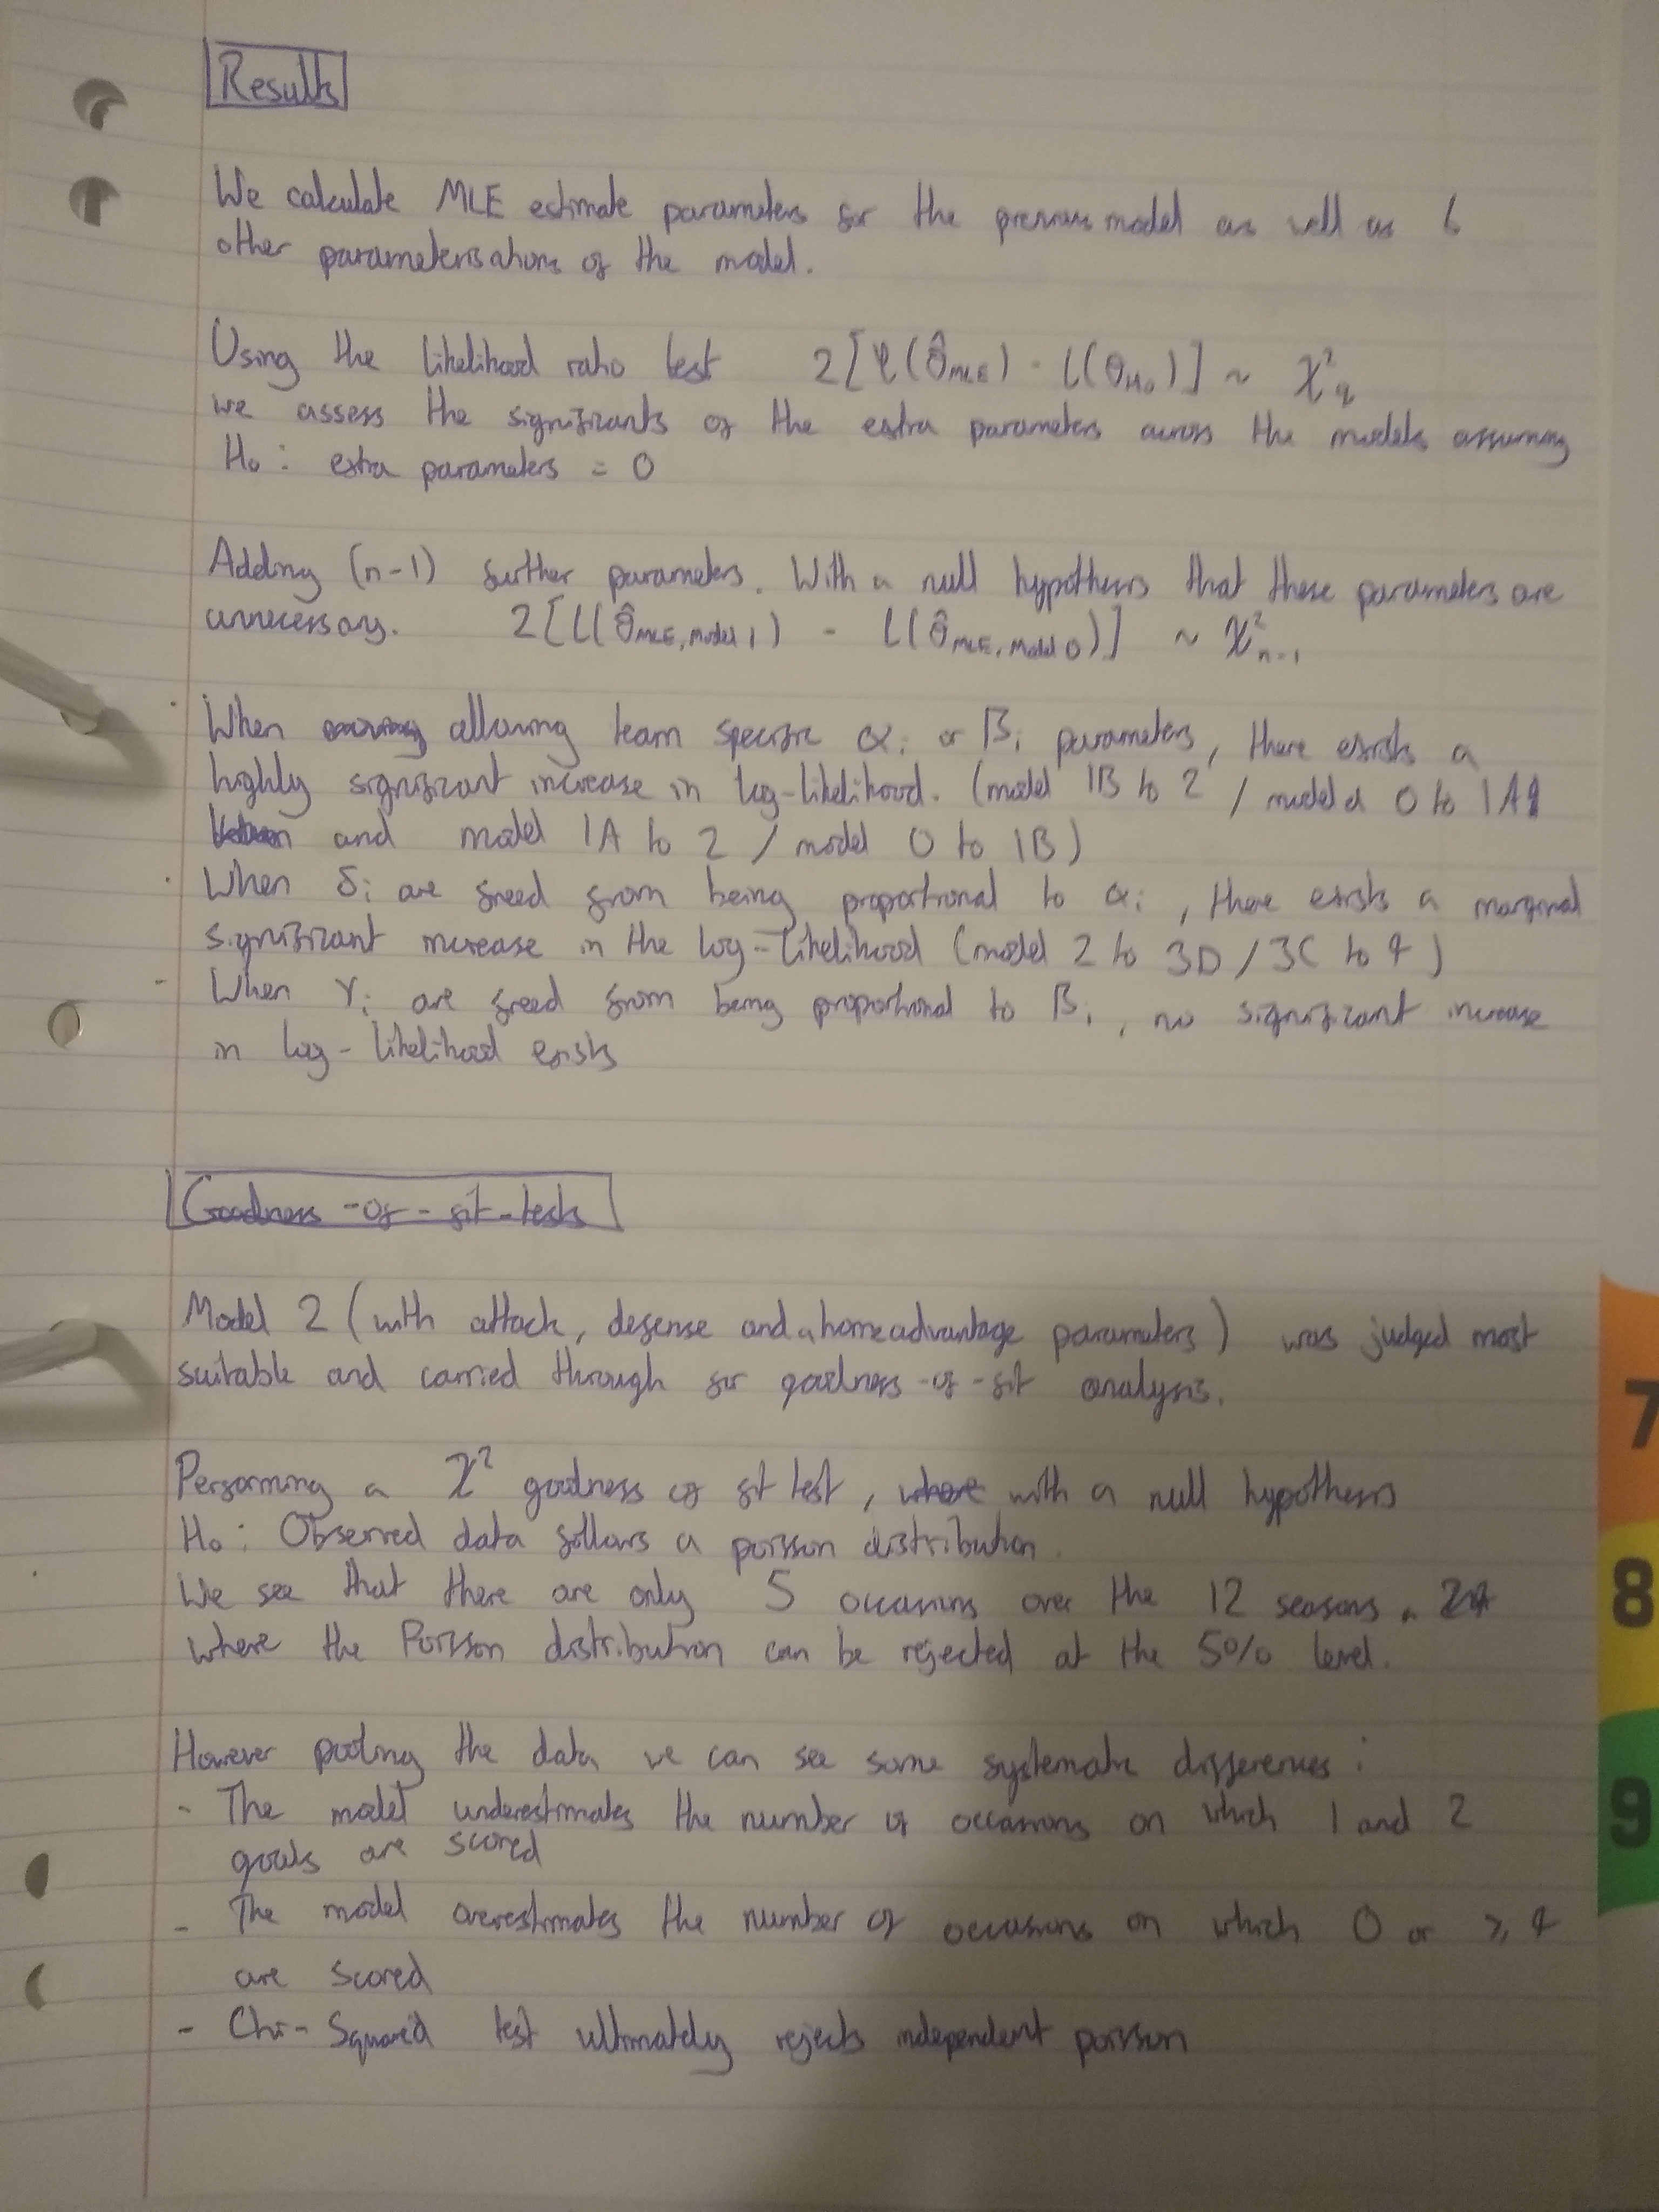 Results
We calculate MLE estimate parameters for the previous model as well as 6
other parameterisations of the model.
Using the likelihood ratio test 2[ℓ(θ̂_MLE) - l(θ_H₀)] ~ χ²_q
we assess the significants of the extra parameters across the models assuming
H₀: extra parameters = 0
Adding (n-1) further parameters. With a null hypothesis that these parameters are
unnecessary. 2[l(θ̂_MLE, Model 1) - l(θ̂_MLE, Model 0)] ~ χ²_n-1
· When allowing team specific αᵢ or βᵢ parameters, there exists a
highly significant increase in log-likelihood. (model 1B to 2 / model 0 to 1A
and model 1A to 2 / model 0 to 1B)
· When δᵢ are freed from being proportional to αᵢ, there exists a marginal
significant increase in the log-likelihood (model 2 to 3D / 3C to 4)
- When γᵢ are freed from being proportional to βᵢ, no significant increase
in log-likelihood exists
Goodness-of-fit-tests
Model 2 (with attack, defense and a home advantage parameters) was judged most
suitable and carried through for goodness-of-fit analysis.
Performing a χ² goodness of fit test, with a null hypothesis
H₀: Observed data follows a poisson distribution.
We see that there are only 5 occasions over the 12 seasons
where the Poisson distribution can be rejected at the 5% level.
However pooling the data we can see some systematic differences:
- The model underestimates the number of occasions on which 1 and 2
goals are scored
- The model overestimates the number of occasions on which 0 or ≥ 4
are scored
- Chi-Squared test ultimately rejects independent poisson
7
8
9